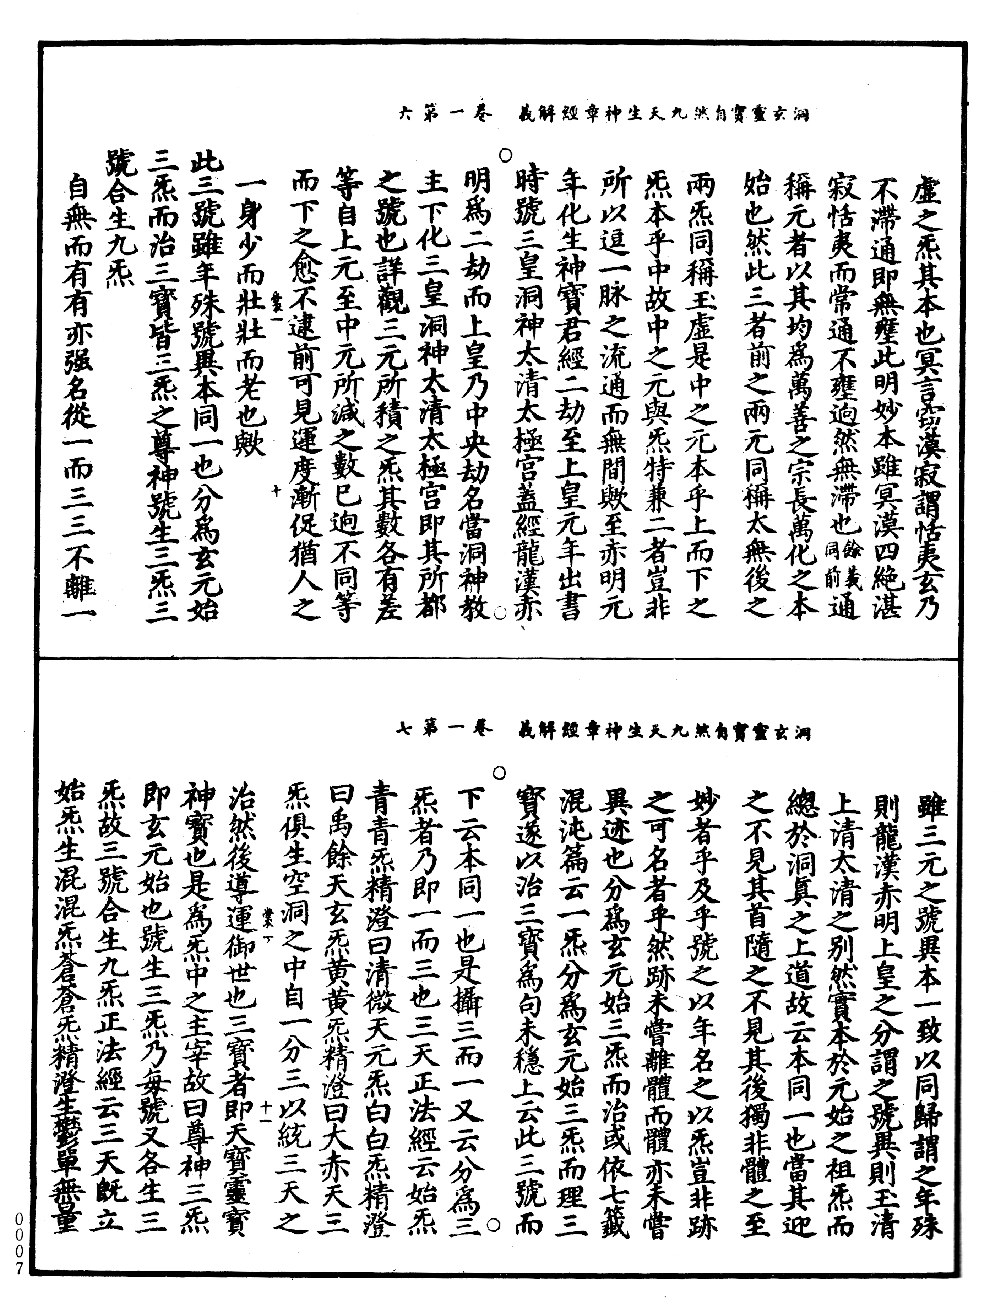 洞玄靈寶自然九天生神章經解義　卷一　第六
虛之炁其本也冥言窈漠寂謂恬夷玄乃
不滯通即無壅此明妙本雖冥漠四絶湛
寂恬夷而常通不壅逈然無滯也餘義同前通
稱元者以其均爲萬善之宗長萬化之本
始也然此三者前之兩元同稱太無後之
兩炁同稱玉虛是中之元本乎上而下之
炁本乎中故中之元與炁特兼二者豈非
所以逗一脉之流通而無間歟至赤明元
年化生神寶君經二劫至上皇元年出書
時號三皇洞神太清太極宮蓋經龍漢赤
明爲二劫而上皇乃中央劫名當洞神教
主下化三皇洞神太清太極宮即其所都
之號也詳觀三元所積之炁其數各有差
等自上元至中元所減之數巳逈不同等
而下之愈不逮前可見運度漸促猶人之
裳一　十
一身少而壯壯而老也歟
此三號雖年殊號異本同一也分爲玄元始
三炁而治三寶皆三炁之尊神號生三炁三
號合生九炁
自無而有有亦强名從一而三三不離一
洞玄靈寶自然九天生神章經解義　卷一　第七
雖三元之號異本一致以同歸謂之年殊
則龍漢赤明上皇之分謂之號異則玉清
上清太清之別然實本於元始之祖炁而
總於洞真之上道故云本同一也當其迎
之不見其首隨之不見其後獨非體之至
妙者乎及乎號之以年名之以炁豈非跡
之可名者乎然跡未嘗離體而體亦未嘗
異迹也分爲玄元始三炁而治或依七籤
混沌篇云一炁分爲玄元始三炁而理三
寶遂以治三寶爲句未穩上云此三號而
下云本同一也是攝三而一又云分爲三
炁者乃即一而三也三天正法經云始炁
青青炁精澄曰清微天元炁白白炁精澄
曰禹餘天玄炁黄黄炁精澄曰大赤天三
炁俱生空洞之中自一分三以統三天之
裳一　十一
治然後導運御世也三寶者即天寶靈寶
神寶也是爲炁中之主宰故曰尊神三炁
即玄元始也號生三炁乃每號又各生三
炁故三號合生九炁正法經云三天既立
始炁生混混炁蒼蒼炁精澄生鬱單無量
0007